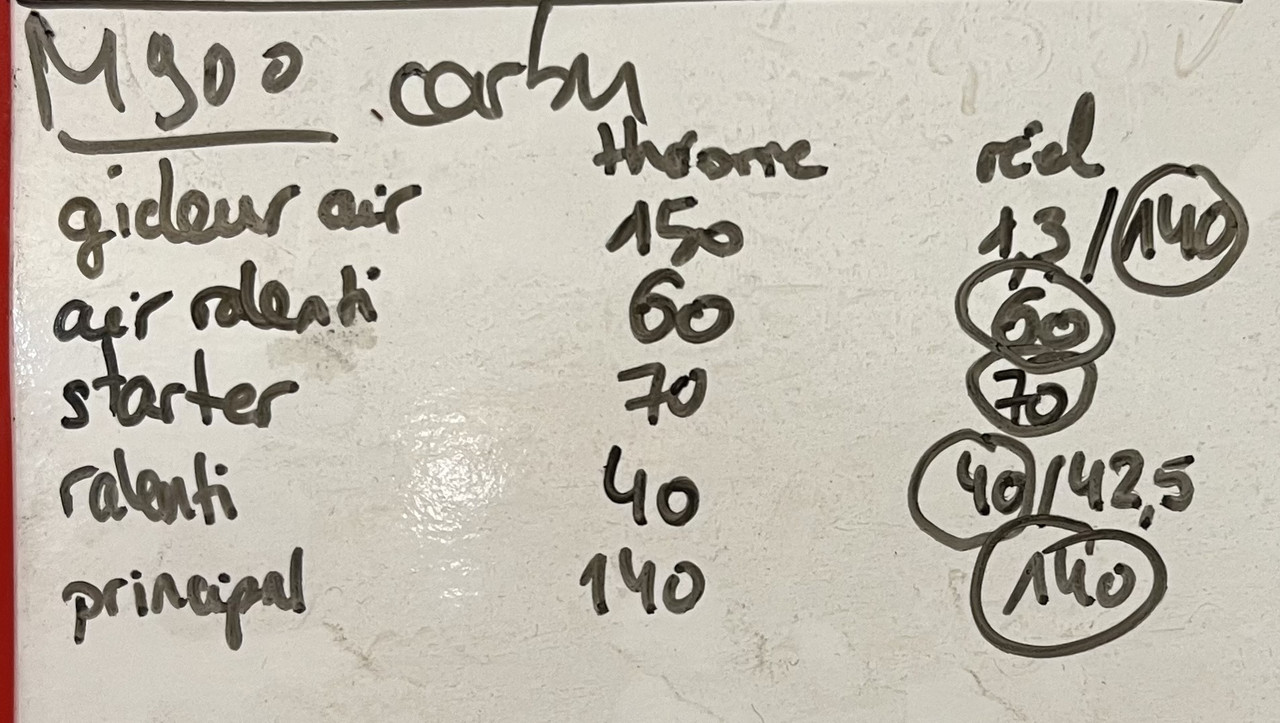 M900 carbu
théorie réel
gicleur air 150 1,3/140
air ralenti 60 60
starter 70 70
ralenti 40 40/42,5
principal 140 140